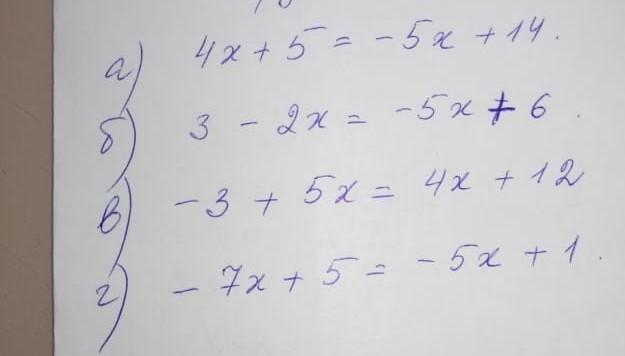 а) 4x + 5 = -5x + 14.
б) 3 - 2x = -5x + 6.
в) -3 + 5x = 4x + 12
г) -7x + 5 = -5x + 1.